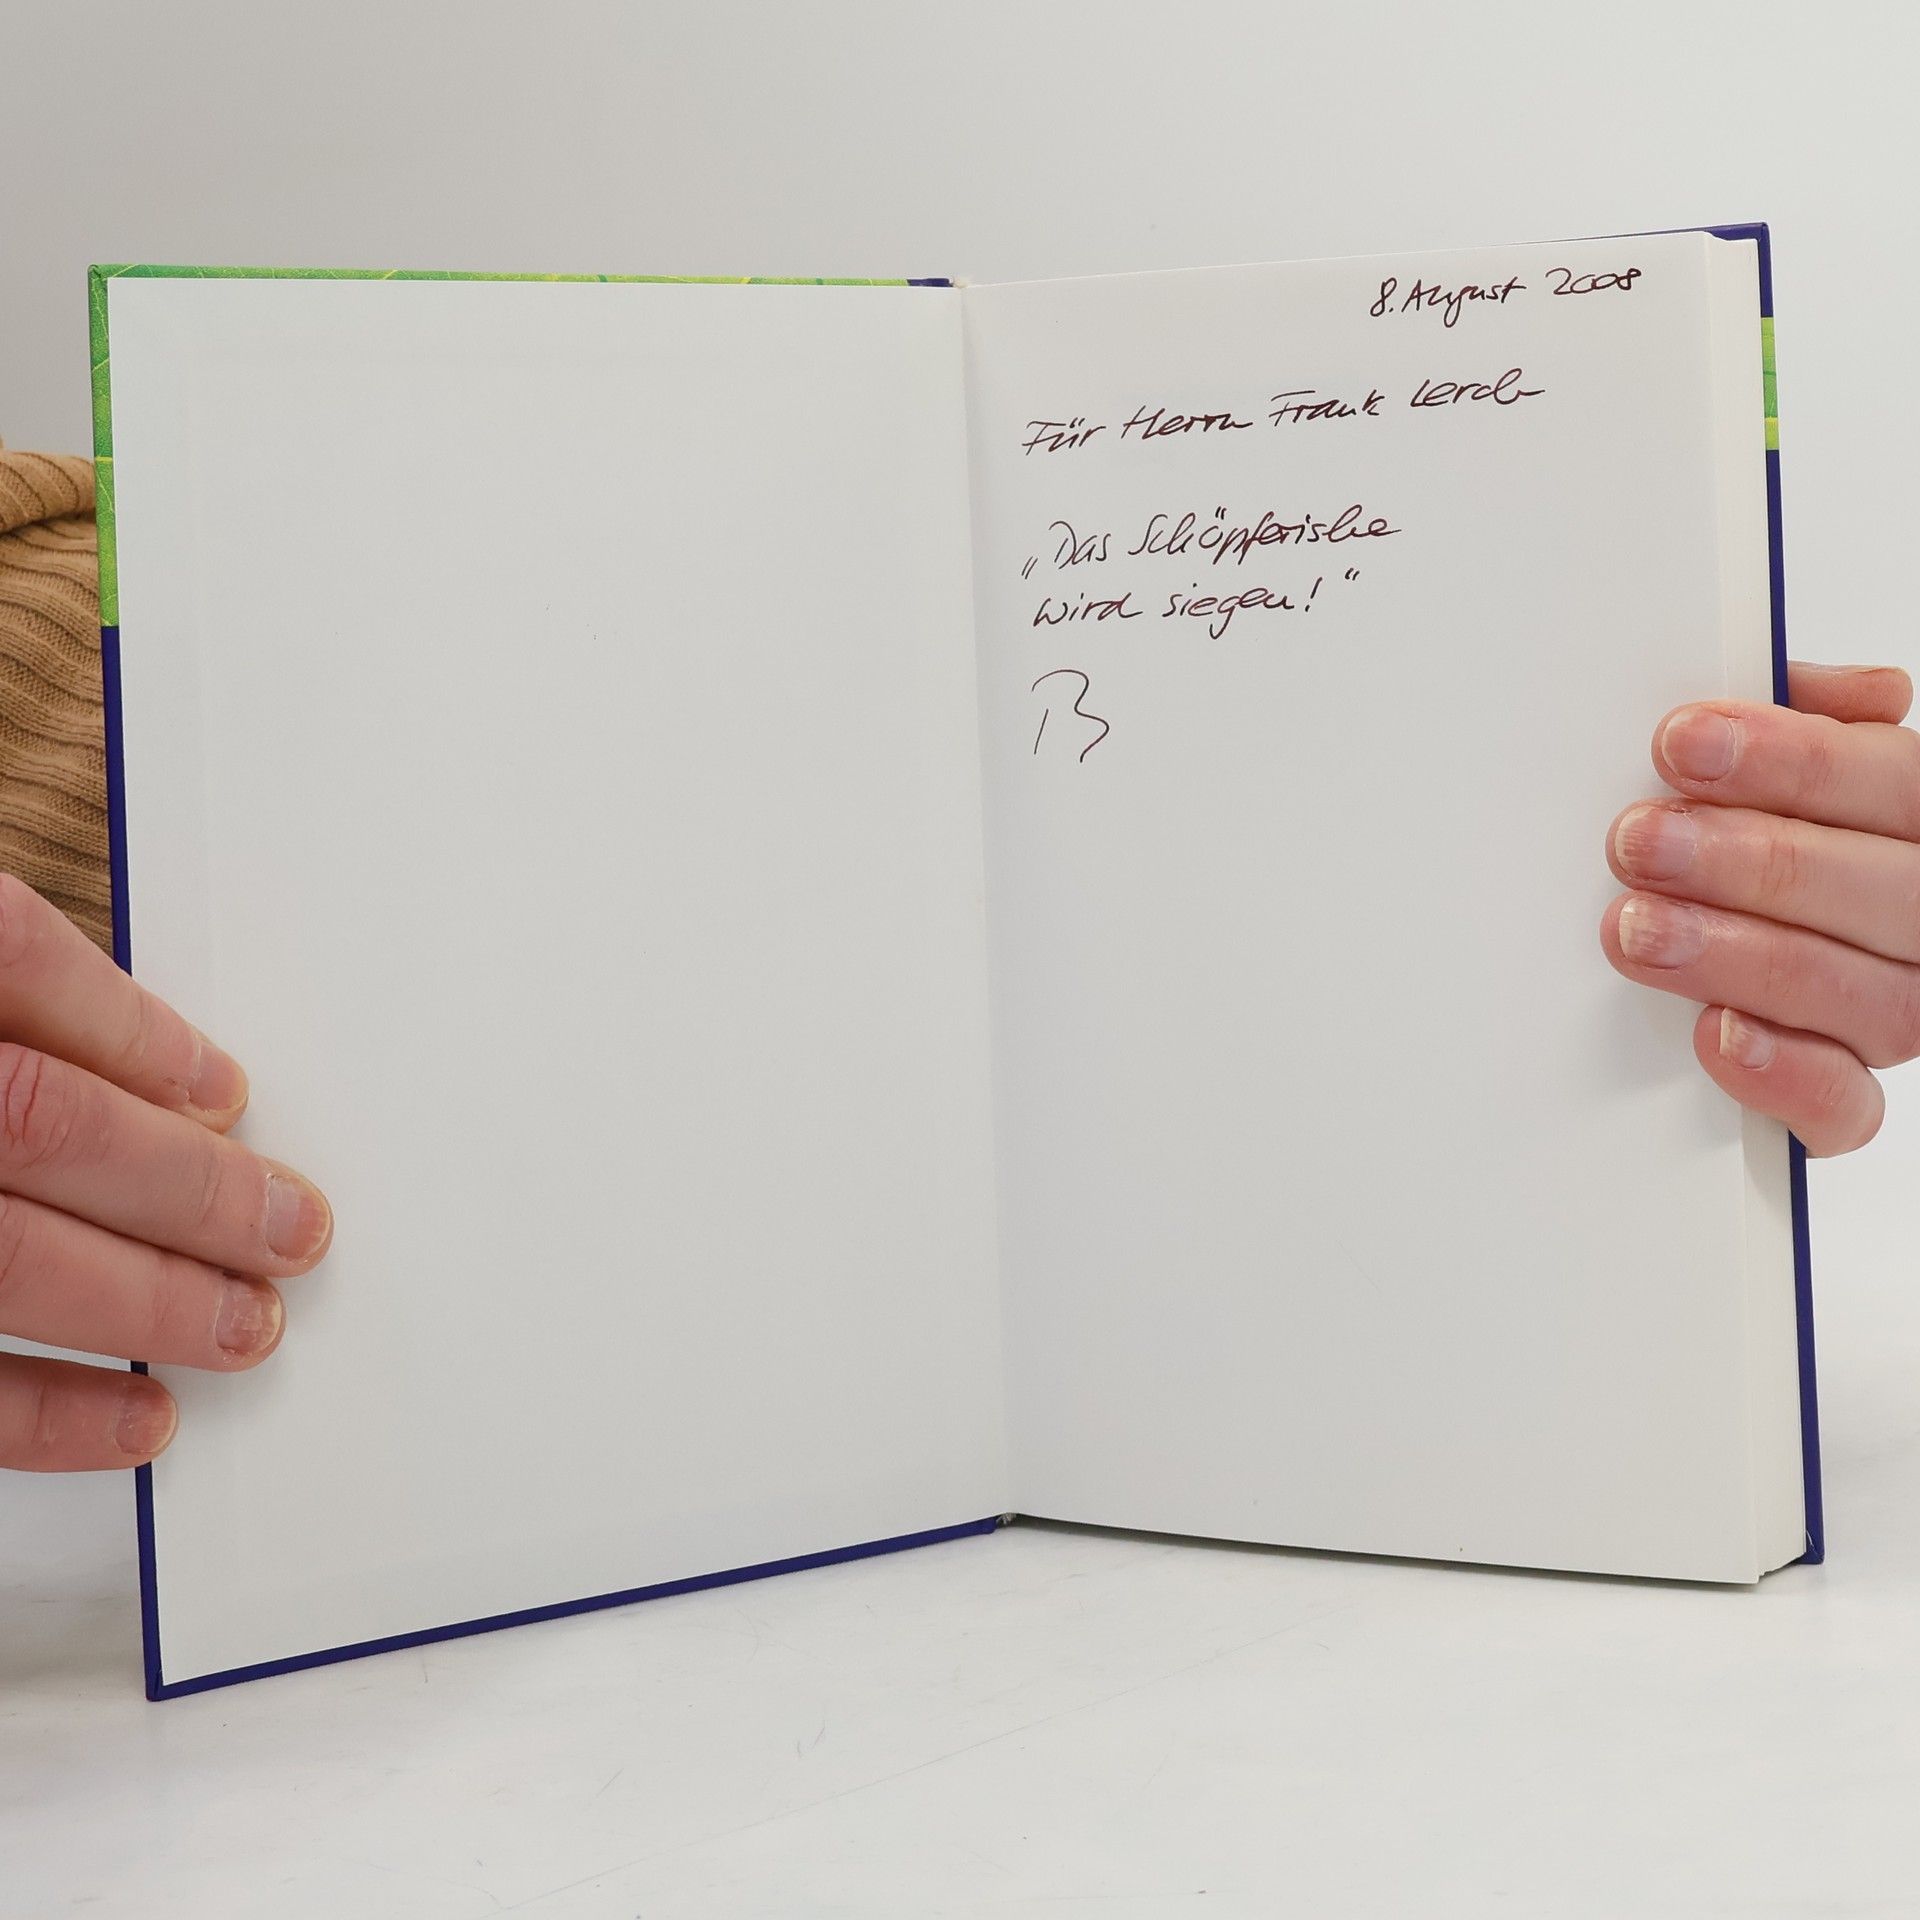 8. August 2008
Für Herrn Frank Lerch
„Das Schöpferische
wird siegen!“
B